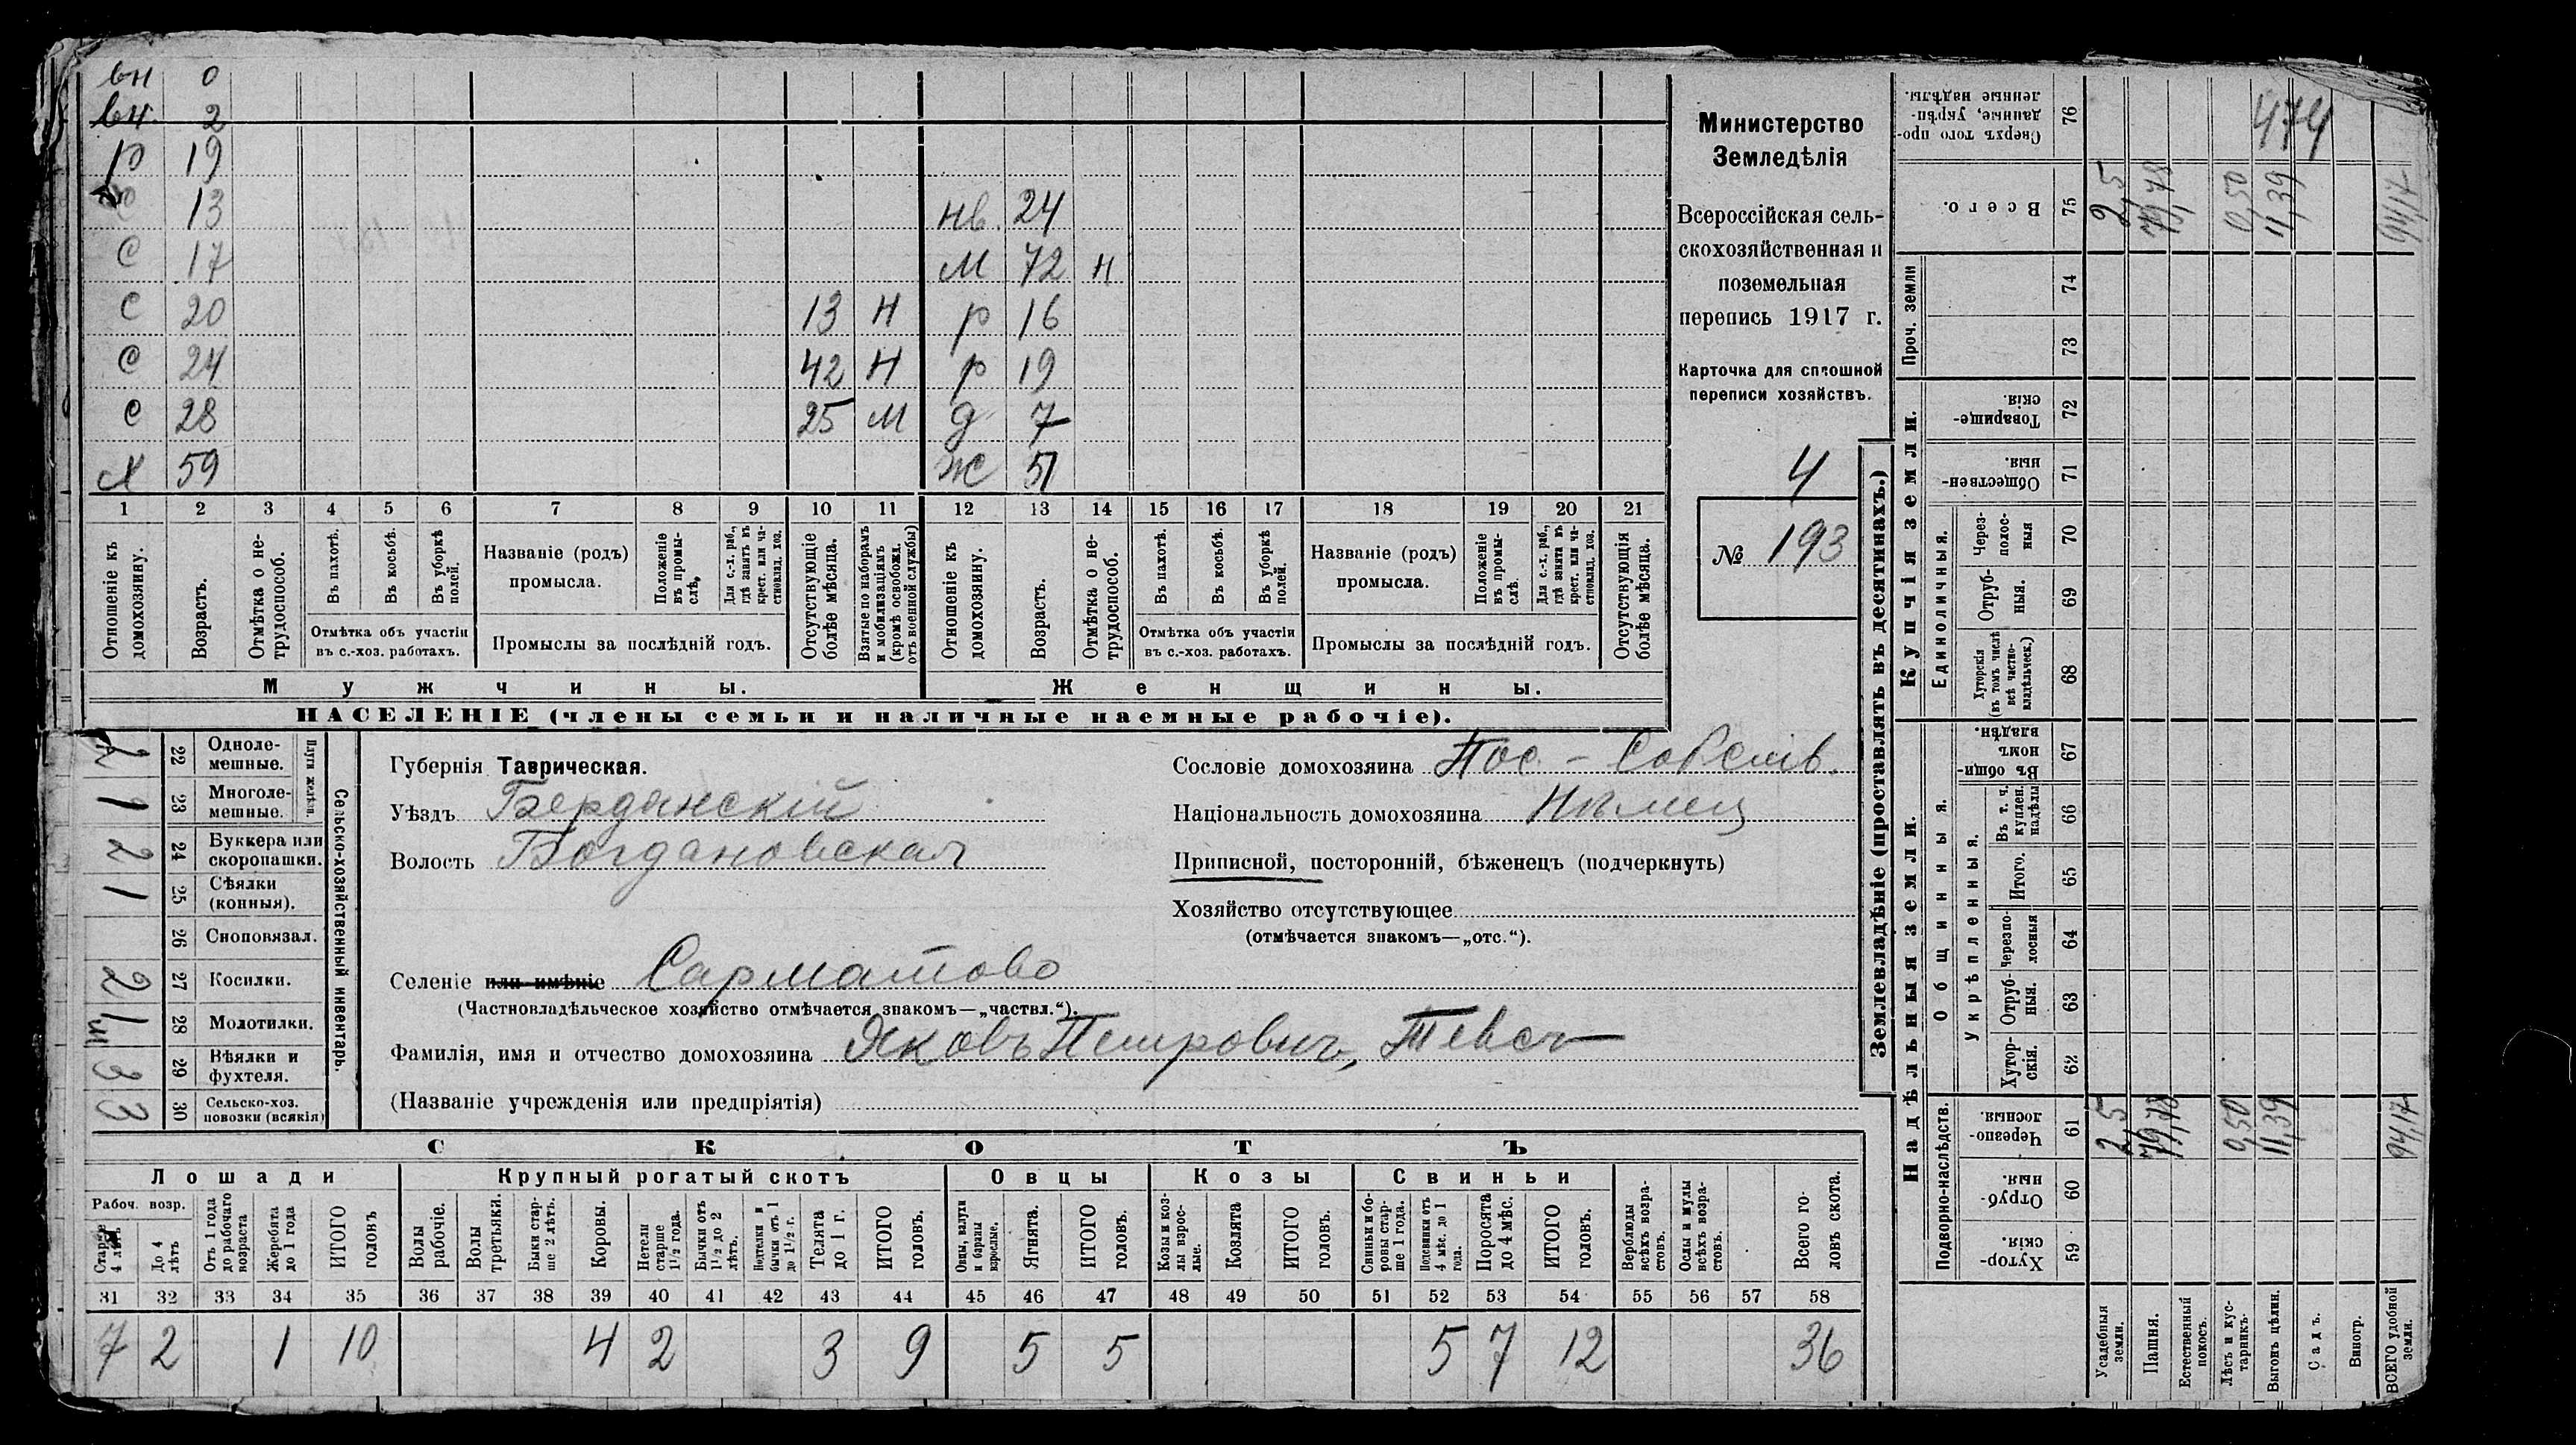 вн 0
вн. 2
р 19
13 нв. 24
с 17 м 72 н
с 20 13 н р 16
с 24 42 н р 19
с 28 25 м д 7
х 59 ж 51
1 2 3 4 5 6 7 8 9 10 11 12 13 14 15 16 17 18 19 20 21
Отношеніе къ домохозяину.
Возрастъ.
Отмѣтка о нетрудоспособ.
Въ пахотѣ.
Въ косьбѣ.
Въ уборкѣ полей.
Отмѣтка объ участіи въ с.-хоз. работахъ.
Названіе (родъ) промысла.
Положеніе въ промыслѣ.
Для с.-х. раб., гдѣ занятъ въ крест. или частновлад. хоз.
Промыслы за послѣдній годъ.
Отсутствующіе болѣе мѣсяца.
Взятые по наборамъ и мобилизаціямъ (кромѣ освобожд. отъ военной службы)
Отношеніе къ домохозяину.
Возрастъ.
Отмѣтка о нетрудоспособ.
Въ пахотѣ.
Въ косьбѣ.
Въ уборкѣ полей.
Отмѣтка объ участіи въ с.-хоз. работахъ.
Названіе (родъ) промысла.
Положеніе въ промыслѣ.
Для с.-х. раб., гдѣ занята въ крест. или частновлад. хоз.
Промыслы за послѣдній годъ.
Отсутствующія болѣе мѣсяца.
Мужчины. Женщины.
НАСЕЛЕНІЕ (члены семьи и наличные наемные рабочіе).
Министерство
Земледѣлія
Всероссійская сель-
скохозяйственная и
поземельная
перепись 1917 г.
Карточка для сплошной
переписи хозяйствъ.
4
№ 193
Сельско-хозяйственный инвентарь.
Плуги желѣзн.
Однолемешные. 22 2
Многолемешные. 23 1
Буккера или скоропашки. 24 2
Сѣялки (конныя). 25 1
Сноповязал. 26
Косилки. 27 2
Молотилки. 28
Вѣялки и фухтеля. 29 3
Сельско-хоз. повозки (всякія) 30 3
Губернія Таврическая.
Уѣздъ Бердянскій
Волость Богдановская
Селеніе или имѣніе Сарматово
(Частновладѣльческое хозяйство отмѣчается знакомъ—„частвл.“).
Фамилія, имя и отчество домохозяина Яковъ Петровичъ, Тевсъ
(Названіе учрежденія или предпріятія)
Сословіе домохозяина Пос. - Собств.
Національность домохозяина Нѣмец
Приписной, посторонній, бѣженецъ (подчеркнуть)
Хозяйство отсутствующее
(отмѣчается знакомъ—„отс.“).
СКОТЪ
Лошади Крупный рогатый скотъ Овцы Козы Свиньи
Рабоч. возр.
Старше 4 лѣтъ
До 4 лѣтъ
Отъ 1 года до рабочаго возраста
Жеребята до 1 года
ИТОГО головъ
Волы рабочіе.
Волы третьяки.
Быки старше 2 лѣтъ.
Коровы.
Нетели старше 1½ года.
Бычки отъ 1½ до 2 лѣтъ.
Подтелки и бычки отъ 1 до 1½ г.
Телята до 1 г.
ИТОГО головъ.
Овцы, валухи и бараны взрослые.
Ягнята.
ИТОГО головъ.
Козы и козлы взрослые.
Козлята
ИТОГО головъ.
Свиньи и боровы старше 1 года.
Подсвинки отъ 4 мѣс. до 1 года.
Поросята до 4 мѣс.
ИТОГО головъ.
Верблюды всѣхъ возрастовъ.
Ослы и мулы всѣхъ возрастовъ.
Всего головъ скота.
31 32 33 34 35 36 37 38 39 40 41 42 43 44 45 46 47 48 49 50 51 52 53 54 55 56 57 58
7 2 1 10 4 2 3 9 5 5 5 7 12 36
Землевладѣніе (проставлять въ десятинахъ.)
Надѣльныя земли.
Купчія земли.
Проч. земли
Подворно-наслѣдств.
Общинныя.
Укрѣпленныя.
Единоличныя.
Сверхъ того проданные, укрѣпленные надѣлы. 76
Всего. 75
74
73
Товарищескія 72
Общественныя. 71
Черезполосныя 70
Отрубныя. 69
Хуторскія (въ томъ числѣ всѣ частновладѣльческ.) 68
Въ общинномъ владѣн. 67
Въ т. ч. куплен. надѣлы 66
Итого. 65
Черезполосныя 64
Отрубныя. 63
Хуторскія. 62
Черезполосныя. 61
Отрубныя. 60
Хуторскія. 59
474
2,5 79,78 0,50 11,39 94,17
2,5 79,78 0,50 11,39 94,17
Усадебныя земли.
Пашня.
Естественный покосъ.
Лѣсъ и кустарникъ.
Выгонъ цѣлин.
Садъ.
Виногр.
ВСЕГО удобной земли.